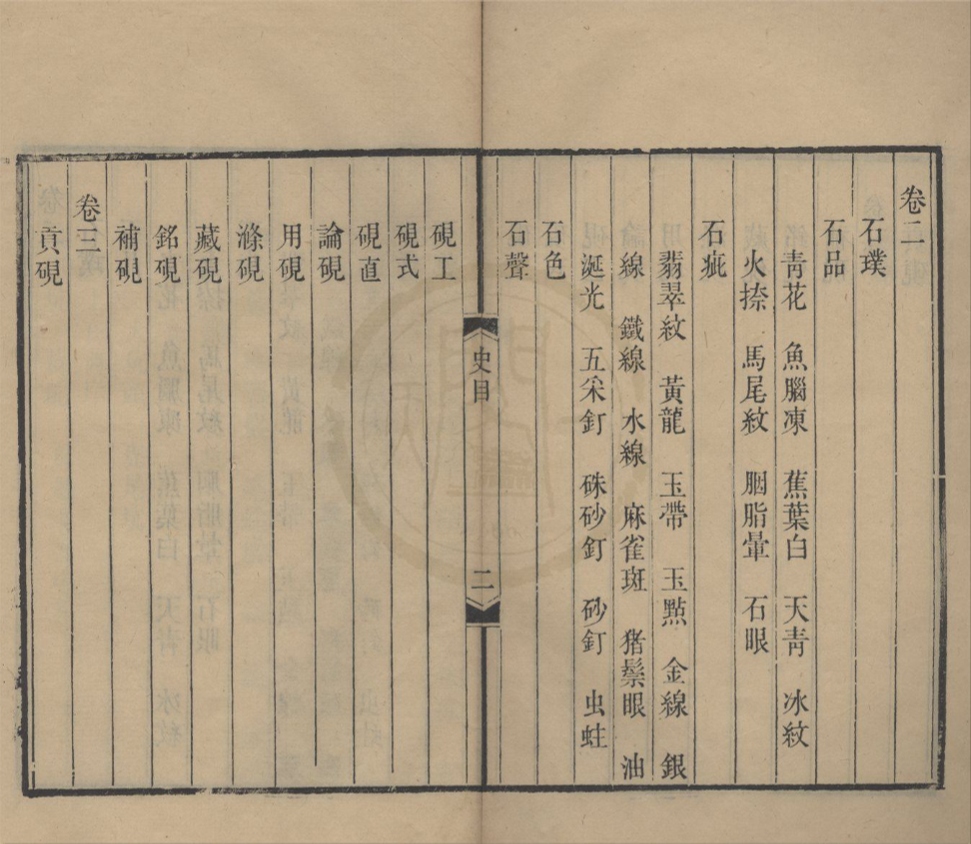 卷二
石璞
石品
青花　魚腦凍　蕉葉白　天青　冰紋
火捺　馬尾紋　胭脂暈　石眼
石疵
翡翠紋　黃龍　玉帶　玉點　金線　銀
線　鐵線　水線　麻雀斑　猪鬃眼　油
涎光　五采釘　硃砂釘　砂釘　虫蛀
石色
石聲
史目
二
硯工
硯式
硯直
論硯
用硯
滌硯
藏硯
銘硯
補硯
卷三
貢硯